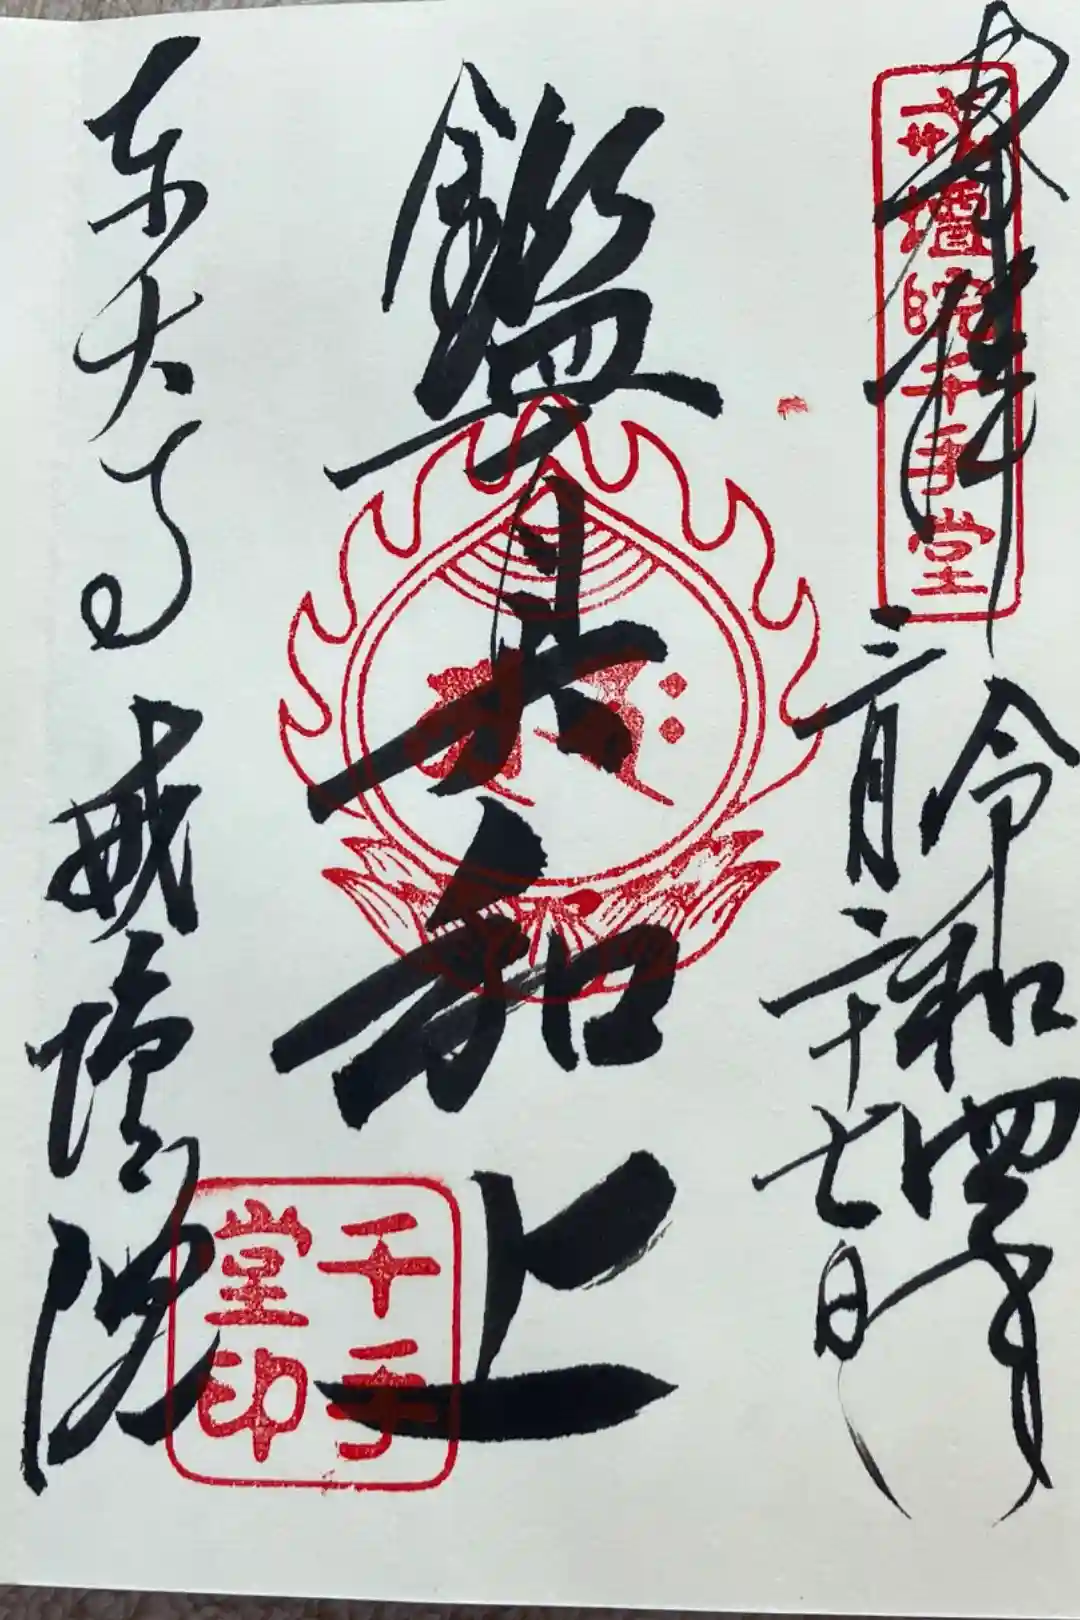 奉拝
戒壇院千手堂
令和四年
二月二十七日
鑑真大和上
東大寺 戒壇院
千手
堂印